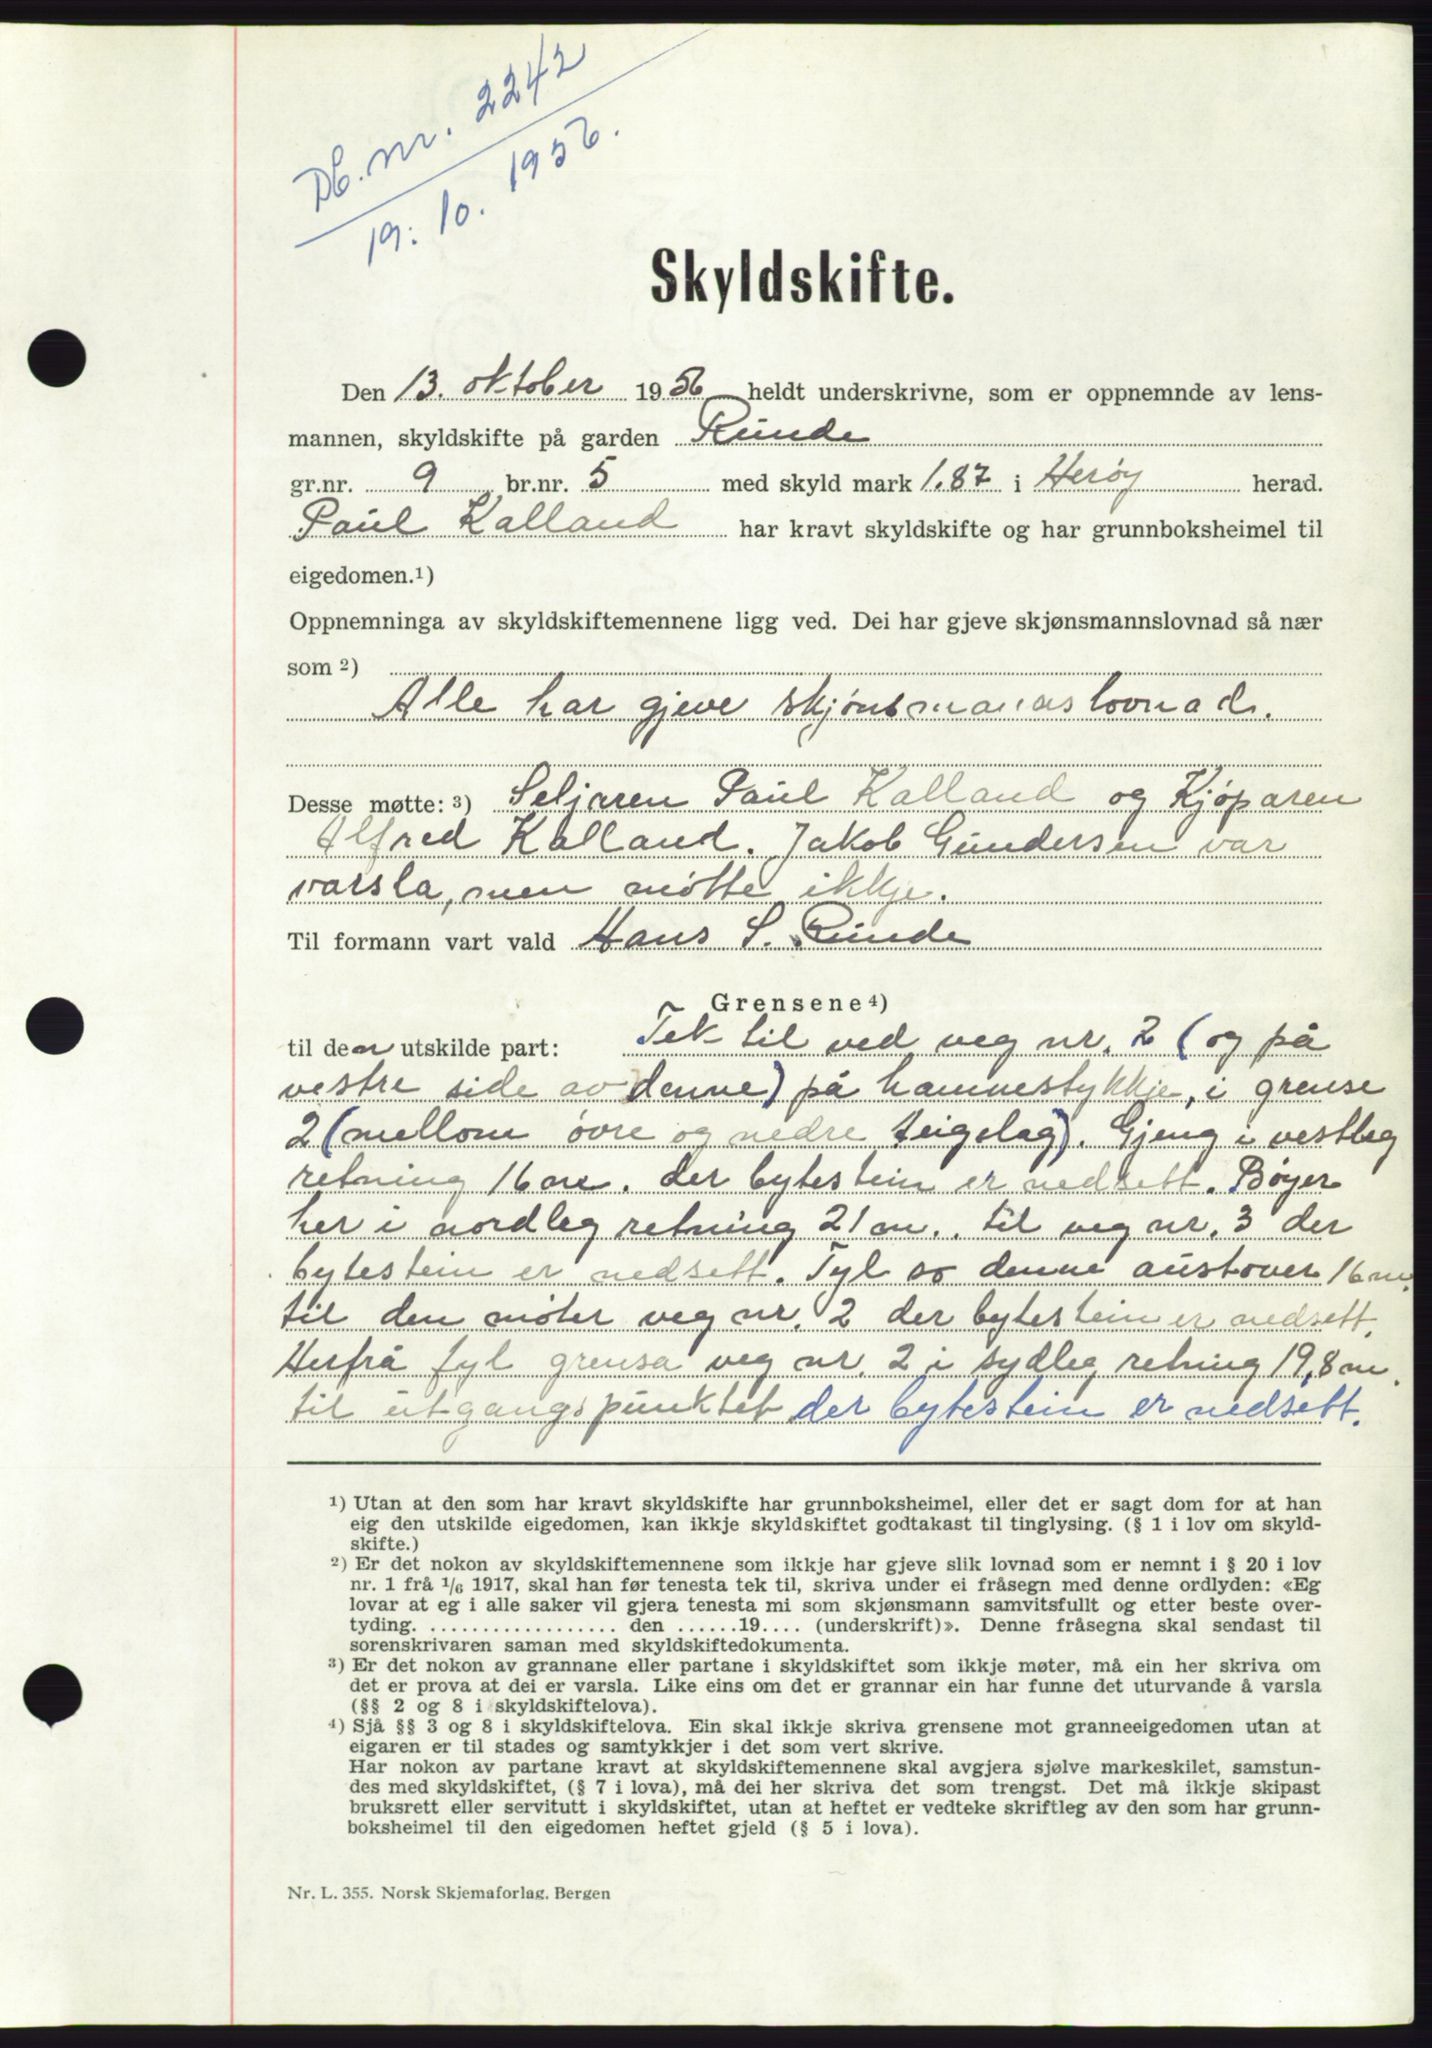 Db. nr. 2242
19. 10. 1956.
Skyldskifte.
Den 13. oktober 1956 heldt underskrivne, som er oppnemnde av lens-
mannen, skyldskifte på garden Runde
gr.nr. 9 br.nr. 5 med skyld mark 1.87 i Herøy herad.
Paul Kalland har kravt skyldskifte og har grunnboksheimel til
eigedomen.¹)
Oppnemninga av skyldskiftemennene ligg ved. Dei har gjeve skjønsmannslovnad så nær
som ²)
Alle har gjeve skjønsmannslovnad.
Desse møtte: ³) Seljaren Paul Kalland og Kjøparen
Alfred Kalland. Jakob Gundersen var
varsla, men møtte ikkje.
Til formann vart vald Hans S. Runde
Grensene ⁴)
til den utskilde part: Tek til ved veg nr. 2 (og på
vestre side av denne) på hamnestykkje, i grense
2 (mellom øvre og nedre teigelag). Gjeng i vestleg
retning 16 m. der bytestein er nedsett. Bøyer
her i nordleg retning 21 m. til veg nr. 3 der
bytestein er nedsett. Fyl so denne austover 16 m.
til den møter veg nr. 2 der bytestein er nedsett.
Herfrå fyl grensa veg nr. 2 i sydleg retning 19,8 m.
til utgangspunktet der bytestein er nedsett.
¹) Utan at den som har kravt skyldskifte har grunnboksheimel, eller det er sagt dom for at han
eig den utskilde eigedomen, kan ikkje skyldskiftet godtakast til tinglysing. (§ 1 i lov om skyld-
skifte.)
²) Er det nokon av skyldskiftemennene som ikkje har gjeve slik lovnad som er nemnt i § 20 i lov
nr. 1 frå 1/6 1917, skal han før tenesta tek til, skriva under ei fråsegn med denne ordlyden: «Eg
lovar at eg i alle saker vil gjera tenesta mi som skjønsmann samvitsfullt og etter beste over-
tyding. .................. den ......19.... (underskrift)». Denne fråsegna skal sendast til
sorenskrivaren saman med skyldskiftedokumenta.
³) Er det nokon av grannane eller partane i skyldskiftet som ikkje møter, må ein her skriva om
det er prova at dei er varsla. Like eins om det er grannar ein har funne det uturvande å varsla
(§§ 2 og 8 i skyldskiftelova).
⁴) Sjå §§ 3 og 8 i skyldskiftelova. Ein skal ikkje skriva grensene mot granneeigedomen utan at
eigaren er til stades og samtykkjer i det som vert skrive.
Har nokon av partane kravt at skyldskiftemennene skal avgjera sjølve markeskilet, samstun-
des med skyldskiftet, (§ 7 i lova), må dei her skriva det som trengst. Det må ikkje skipast
bruksrett eller servitutt i skyldskiftet, utan at heftet er vedteke skriftleg av den som har grunn-
boksheimel til den eigedomen heftet gjeld (§ 5 i lova).
Nr. L. 355. Norsk Skjemaforlag, Bergen